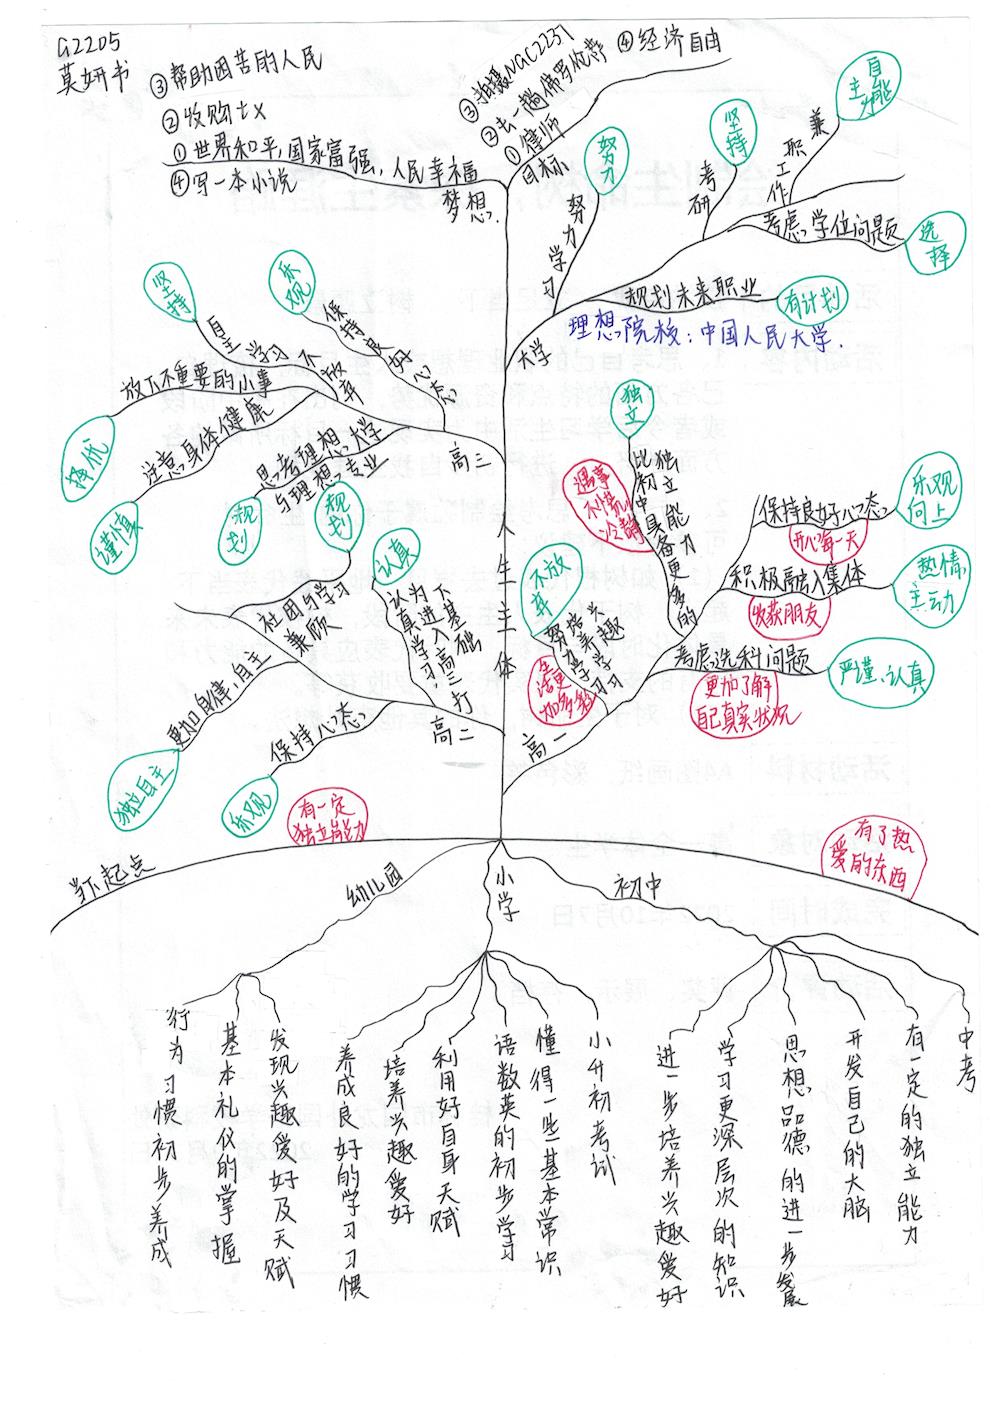 G2205
莫妍书
③帮助困苦的人民
②收购tx
①世界和平,国家富强,人民幸福
④写一本小说
梦想
④经济自由
③拍摄NGC2237
②去一趟佛罗伦萨
①律师
目标
努力
努力学习
坚持
考研
自主能
兼职工作
考虑学位问题
选择
规划未来职业
有计划
大学
理想院校:中国人民大学.
坚持
自主学习
乐观
保持良好心态
不放弃
放下不重要的小事
择优
注意身体健康
谨慎
思考理想大学
与理想专业
规划
高三
人生主体
规划
社团与学习
兼顾
更加自律,自主
独立自主
认真
认真学习,
为进入高三打
下基础
保持心态
乐观
高二
独立
比初中具备更多的
独立能力
遇事
不慌,
冷静
不放弃
努力学习
培养学习
兴趣
生活更
加多彩
保持良好心态
乐观
向上
开心每一天
积极融入集体
热情,
主动
收获朋友
考虑选科问题
严谨、认真
更加了解
自己真实状况
高一
有一定
独立能力
有了热
爱的东西
当下起点
幼儿园
小学
初中
行为习惯初步养成
基本礼仪的掌握
发现兴趣爱好及天赋
养成良好的学习习惯
培养兴趣爱好
利用好自身天赋
语数英的初步学习
懂得一些基本常识
小升初考试
进一步培养兴趣爱好
学习更深层次的知识
思想品德的进一步发展
开发自己的大脑
有一定的独立能力
中考